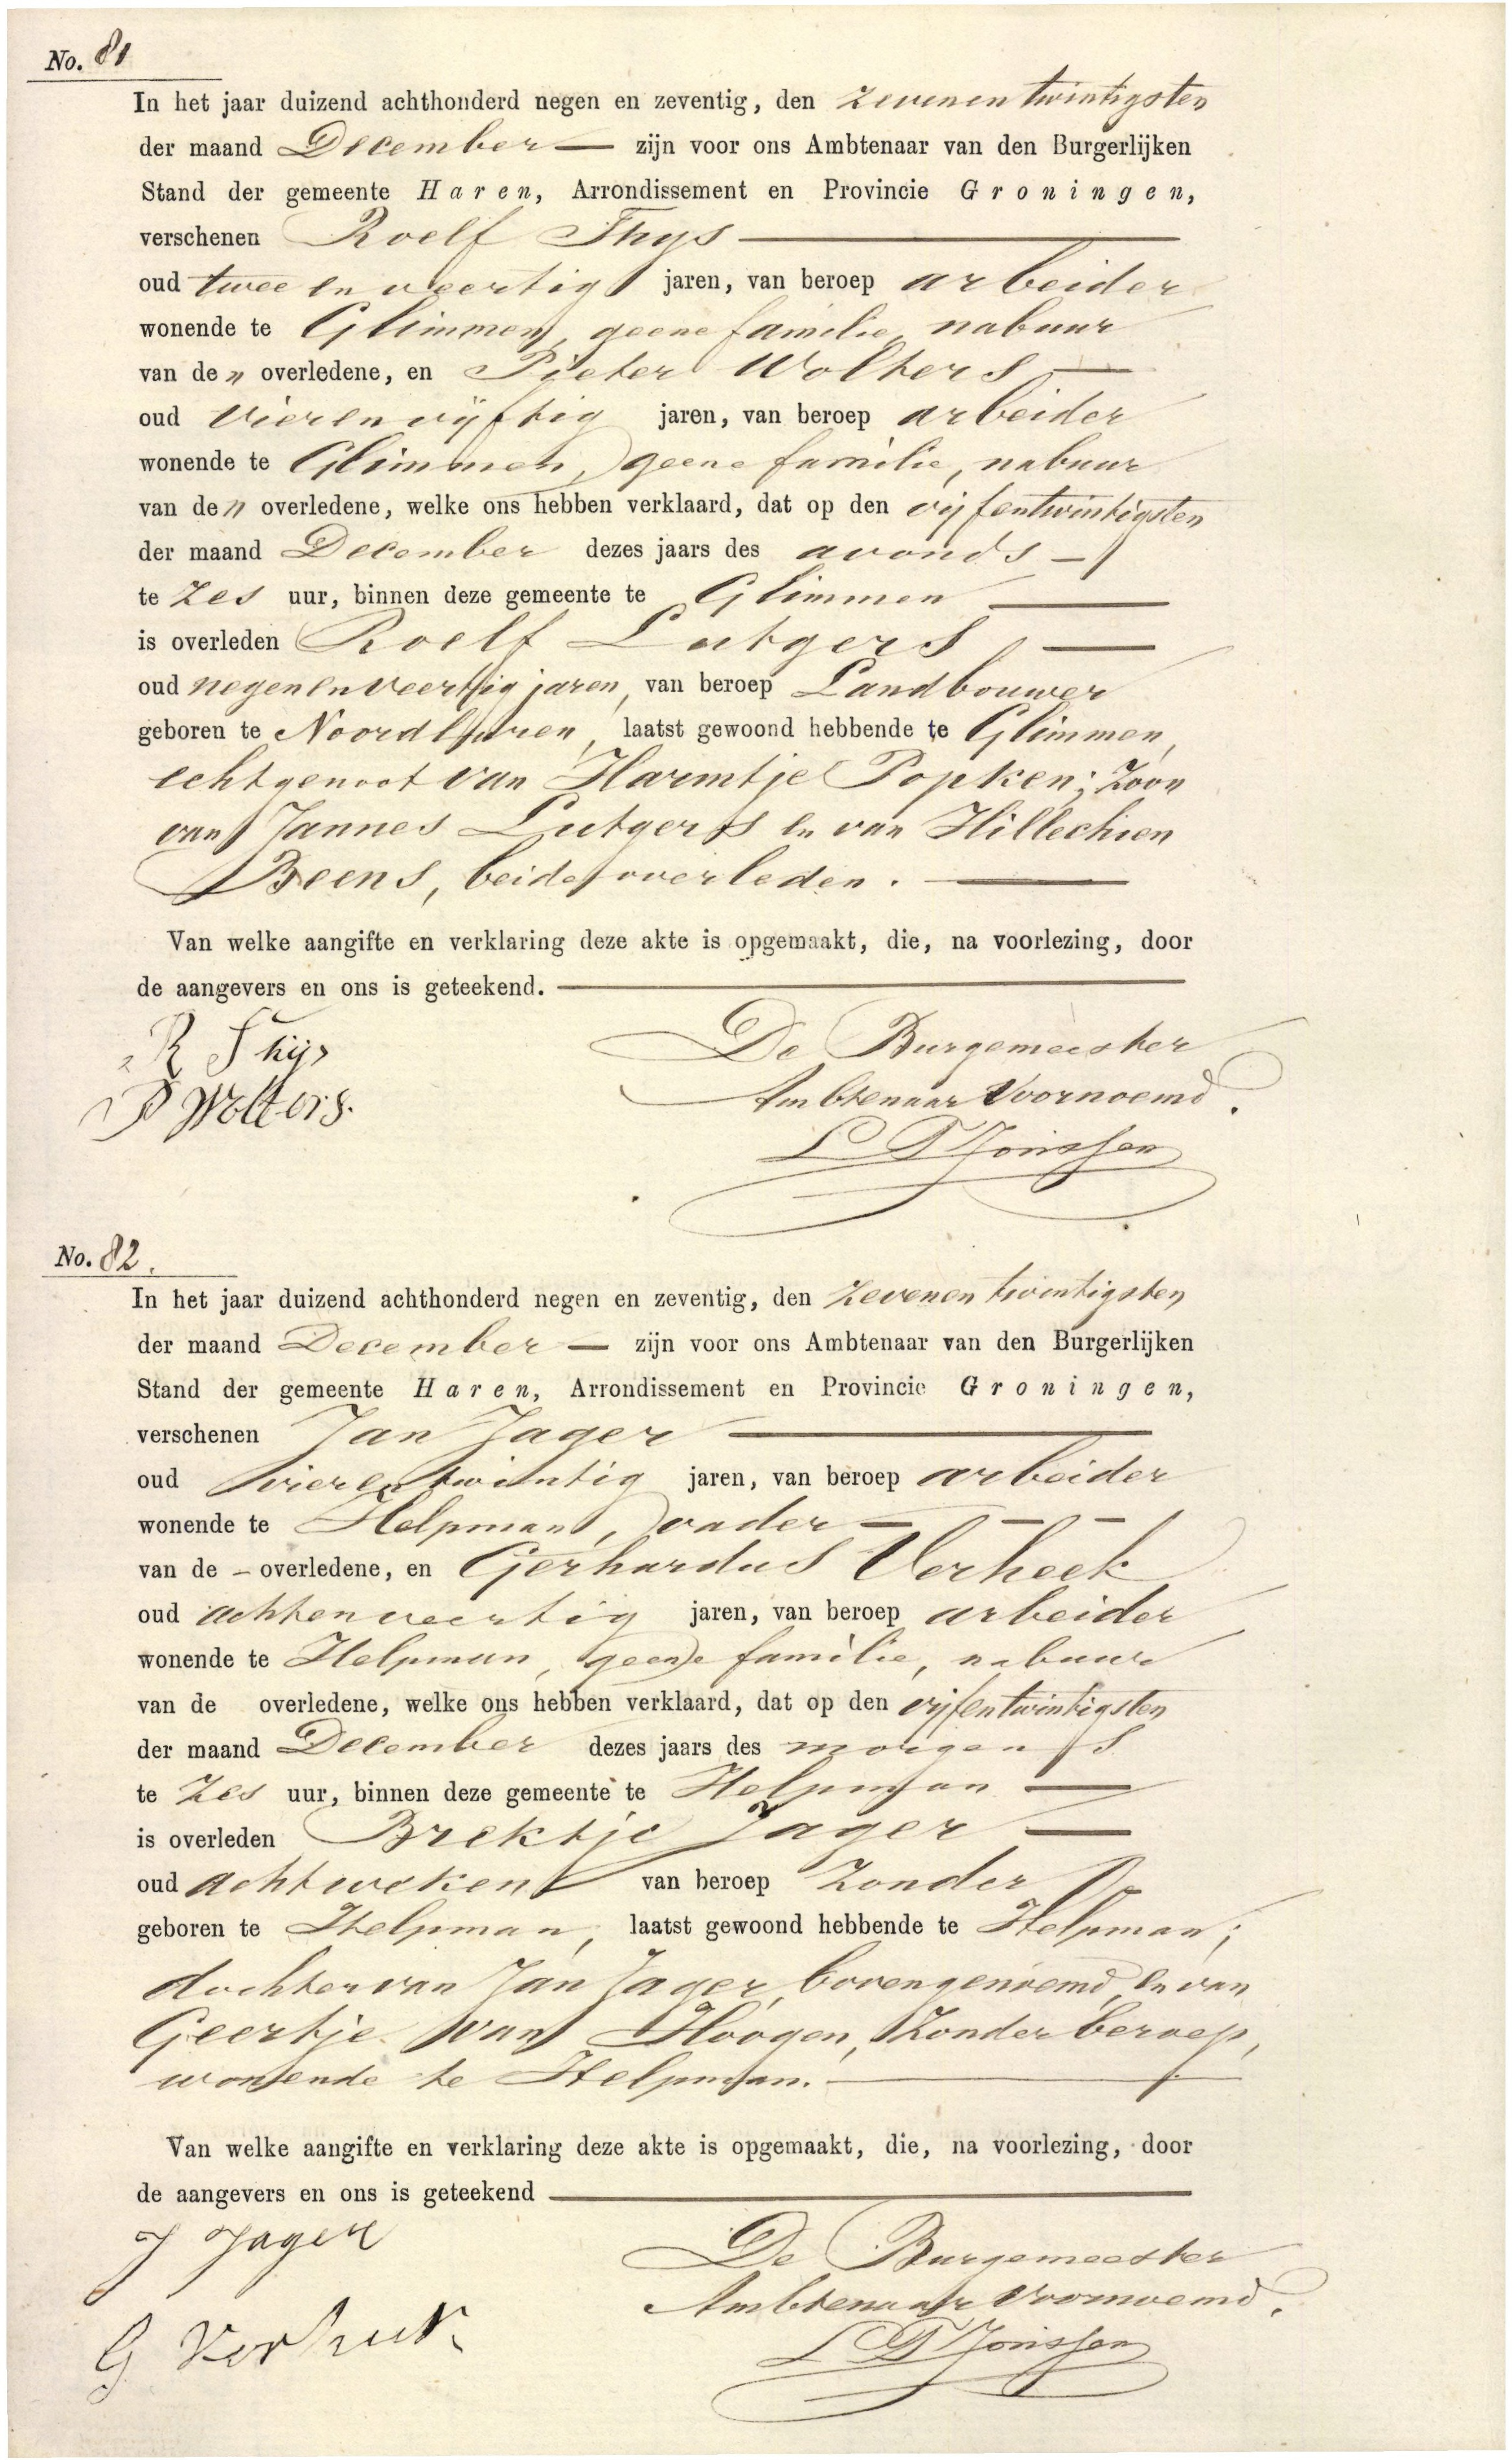 No. 81
In het jaar duizend achthonderd negen en zeventig, den zevenentwintigsten
der maand December — zijn voor ons Ambtenaar van den Burgerlijken
Stand der gemeente Haren, Arrondissement en Provincie Groningen,
verschenen Roelf Thijs —
oud twee en veertig jaren, van beroep arbeider
wonende te Glimmen, geene familie, nabuur
van de " overledene, en Pieter Wolters —
oud vierenvijftig jaren, van beroep arbeider
wonende te Glimmen, geene familie, nabuur
van de " overledene, welke ons hebben verklaard, dat op den vijfentwintigsten
der maand December dezes jaars des avonds —
te zes uur, binnen deze gemeente te Glimmen —
is overleden Roelf Lutgers, —
oud negenenveertig jaren, van beroep Landbouwer
geboren te Noordlaren, laatst gewoond hebbende te Glimmen,
echtgenoot van Harmtje Popken; zoon
van Jannes Lutgers en van Hillechien
Beens, beide overleden. —
Van welke aangifte en verklaring deze akte is opgemaakt, die, na voorlezing, door
de aangevers en ons is geteekend. —
R Thijs
De Burgemeester
P Wolters.
Ambtenaar Voornoemd.
No. 82.
In het jaar duizend achthonderd negen en zeventig, den zevenentwintigsten
der maand December — zijn voor ons Ambtenaar van den Burgerlijken
Stand der gemeente Haren, Arrondissement en Provincie Groningen,
verschenen Jan Jager —
oud vierentwintig jaren, van beroep arbeider
wonende te Helpman, vader — — —
van de – overledene, en Gerhardus Verheek
oud achtenveertig jaren, van beroep arbeider
wonende te Helpman, geene familie, nabuur
van de overledene, welke ons hebben verklaard, dat op den vijfentwintigsten
der maand December dezes jaars des morgens
te zes uur, binnen deze gemeente te Helpman —
is overleden Brektje Jager —
oud acht weken van beroep zonder
geboren te Helpman, laatst gewoond hebbende te Helpman;
dochter van Jan Jager, bovengenoemd en van
Geertje van Hoogen, zonder beroep,
wonende te Helpman. —
Van welke aangifte en verklaring deze akte is opgemaakt, die, na voorlezing, door
de aangevers en ons is geteekend —
J Jager
De Burgemeester
Ambtenaar Voornoemd.
G Verheek